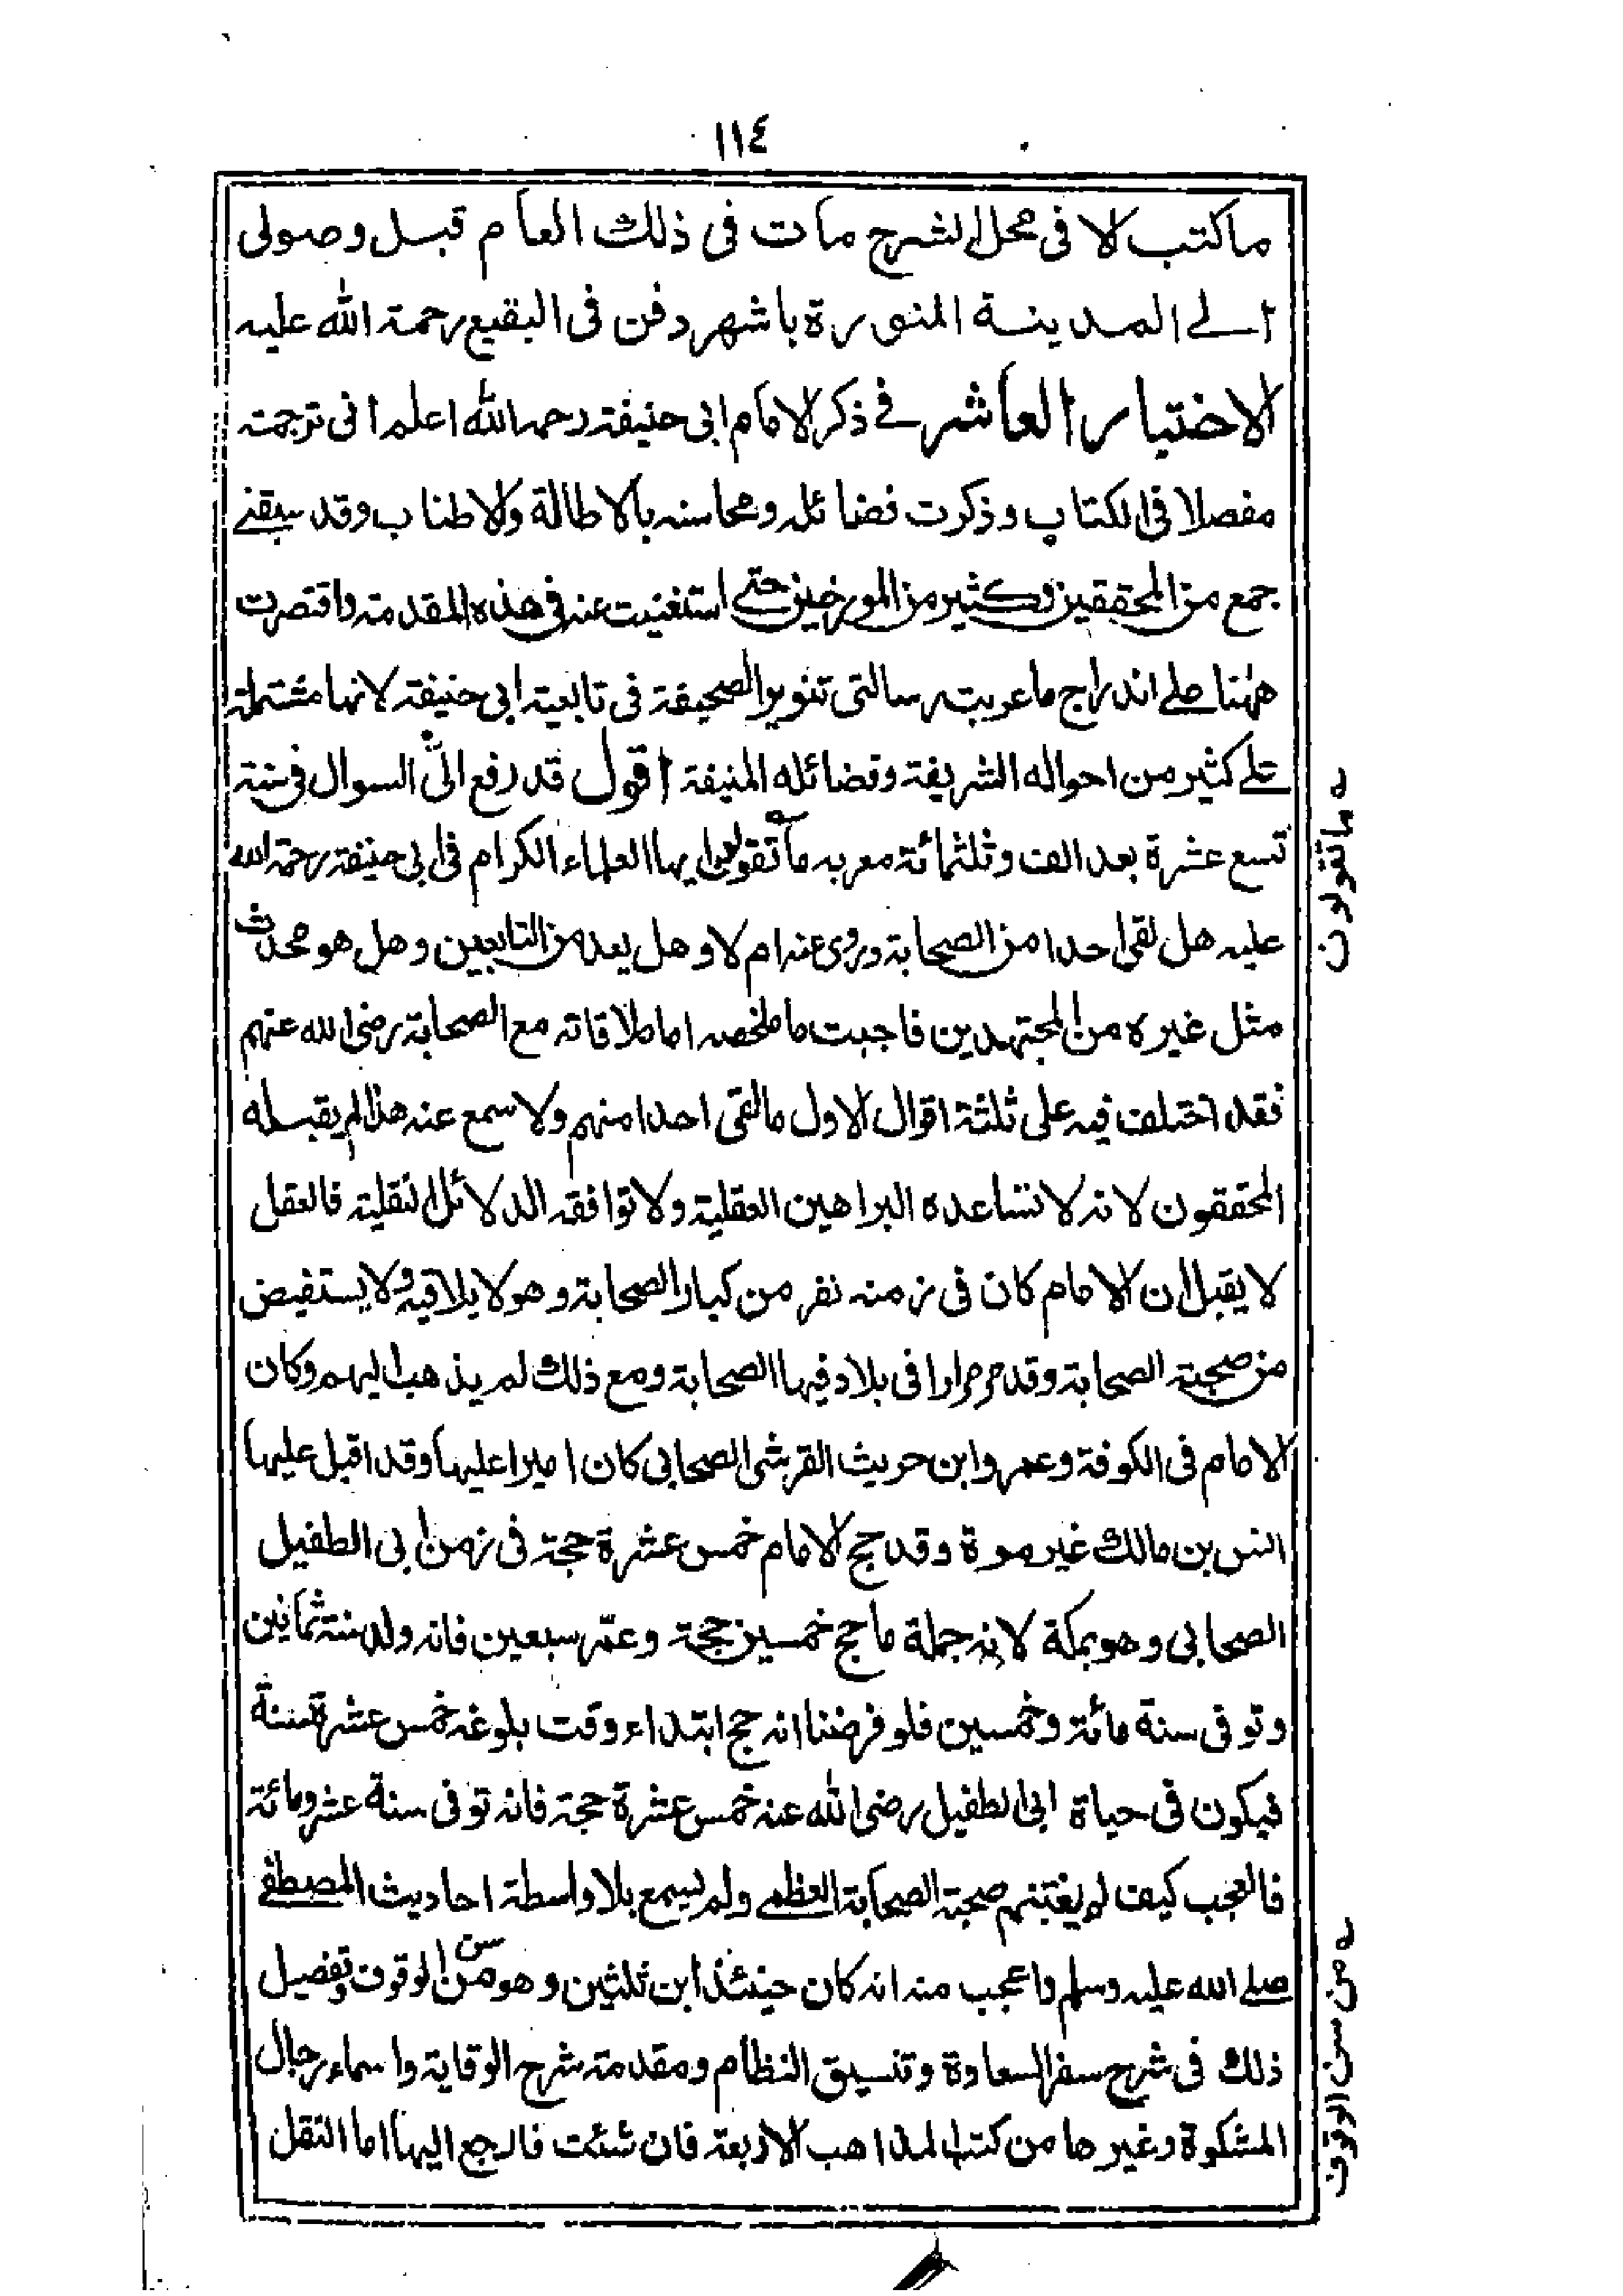 ١١٤
ما كتب لا فى محل الشرح مات فى ذلك العام قبل وصولى
الے المدينة المنورة باشهر دفن فى البقيع رحمة الله عليه
الاختيار العاشر فے ذكر الامام ابى حنيفة رحمه الله اعلم انى ترجمته
مفصلا فى الكتاب و ذكرت فضائله و محاسنه بالاطالة والاطناب وقد سبقنے
جمع من المحققين وكثير من المورخين حتے استغنيت عنه فى هذه المقدمة واقتصرت
ههنا علے اندراج ما عربت رسالتى تنوير الصحيفة فى تابعية ابى حنيفة لانها مشتملة
علے كثير من احواله الشريفة وفضائله المنيفة اقول قد رفع الىّ السوال فى سنة
تسع عشرة بعد الف وثلثمائة معربه ما تقولو ايها العلماء الكرام فى ابى حنيفة رحمة الله
عليه هل لقى احدا من الصحابة وروى عنه ام لا وهل يعد من التابعين وهل هو محدث
مثل غيره من المجتهدين فاجبت ما ملخصه اما ملاقاته مع الصحابة رضى الله عنهم
فقد اختلف فيه على ثلثة اقوال الاول ما لقى احدا منهم ولا سمع عنه هذا لم يقبله
المحققون لانه لا تساعده البراهين العقلية ولا توافقه الدلائل النقلية فالعقل
لا يقبل ان الامام كان فى زمنه نفر من كبار الصحابة وهو لا يلاقيه ولا يستفيض
من صحبة الصحابة وقد مر مرارا فى بلاد فيها الصحابة ومع ذلك لم يذهب اليهم وكان
الامام فى الكوفة وعمرو ابن حريث القرشى الصحابى كان اميرا عليها وقد اقبل عليها
انس بن مالك غير مرة وقد حج الامام خمس عشرة حجة فى زمن ابى الطفيل
الصحابى وهو بمكة لانه جملة ما حج خمسين حجة وعمّر سبعين فانه ولد سنة ثمانين
وتوفى سنة مائة وخمسين فلو فرضنا انه حج ابتداء وقت بلوغه خمس عشرة سنة
فيكون فى حياة ابى الطفيل رضى الله عنه خمس عشرة حجة فانه توفى سنة عشر ومائة
فالعجب كيف لم يغتنم صحبة الصحابة العظمے ولم يسمع بلا واسطة احاديث المصطفے
صلے الله عليه وسلم واعجب منه انه كان حينئذ ابن ثلثين وهو من سن الوقوف وتفصيل
ذلك فى شرح سفر السعادة وتنسيق النظام ومقدمة شرح الوقاية واسماء رجال
المشكوة وغيرها من كتب المذاهب الاربعة فان شئت فارجع اليها اما النقل
ے ما تقولون
ے من سن الوقوف